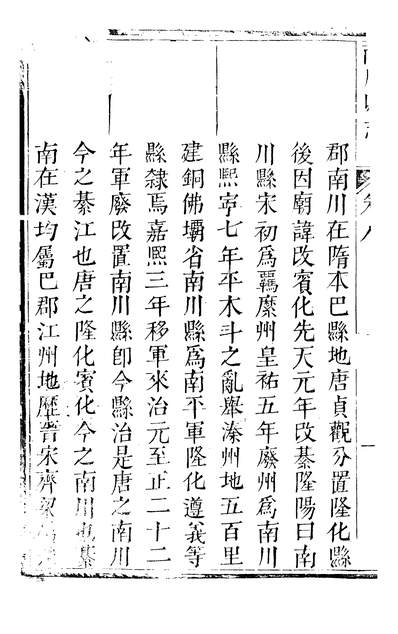 南川縣志
卷八
郡南川在隋本巴縣地唐貞觀分置隆化縣
後因廟諱改賓化先天元年改綦隆陽曰南
川縣宋初爲羈縻州皇祐五年廢州爲南川
縣熙寧七年平木斗之亂舉溱州地五百里
建銅佛壩省南川縣爲南平軍隆化遵義等
縣隸焉嘉熙三年移軍來治元至正二十二
年軍廢改置南川縣卽今縣治是唐之南川
今之綦江也唐之隆化賓化今之南川也綦
南在漢均屬巴郡江州地歷晉宋齊